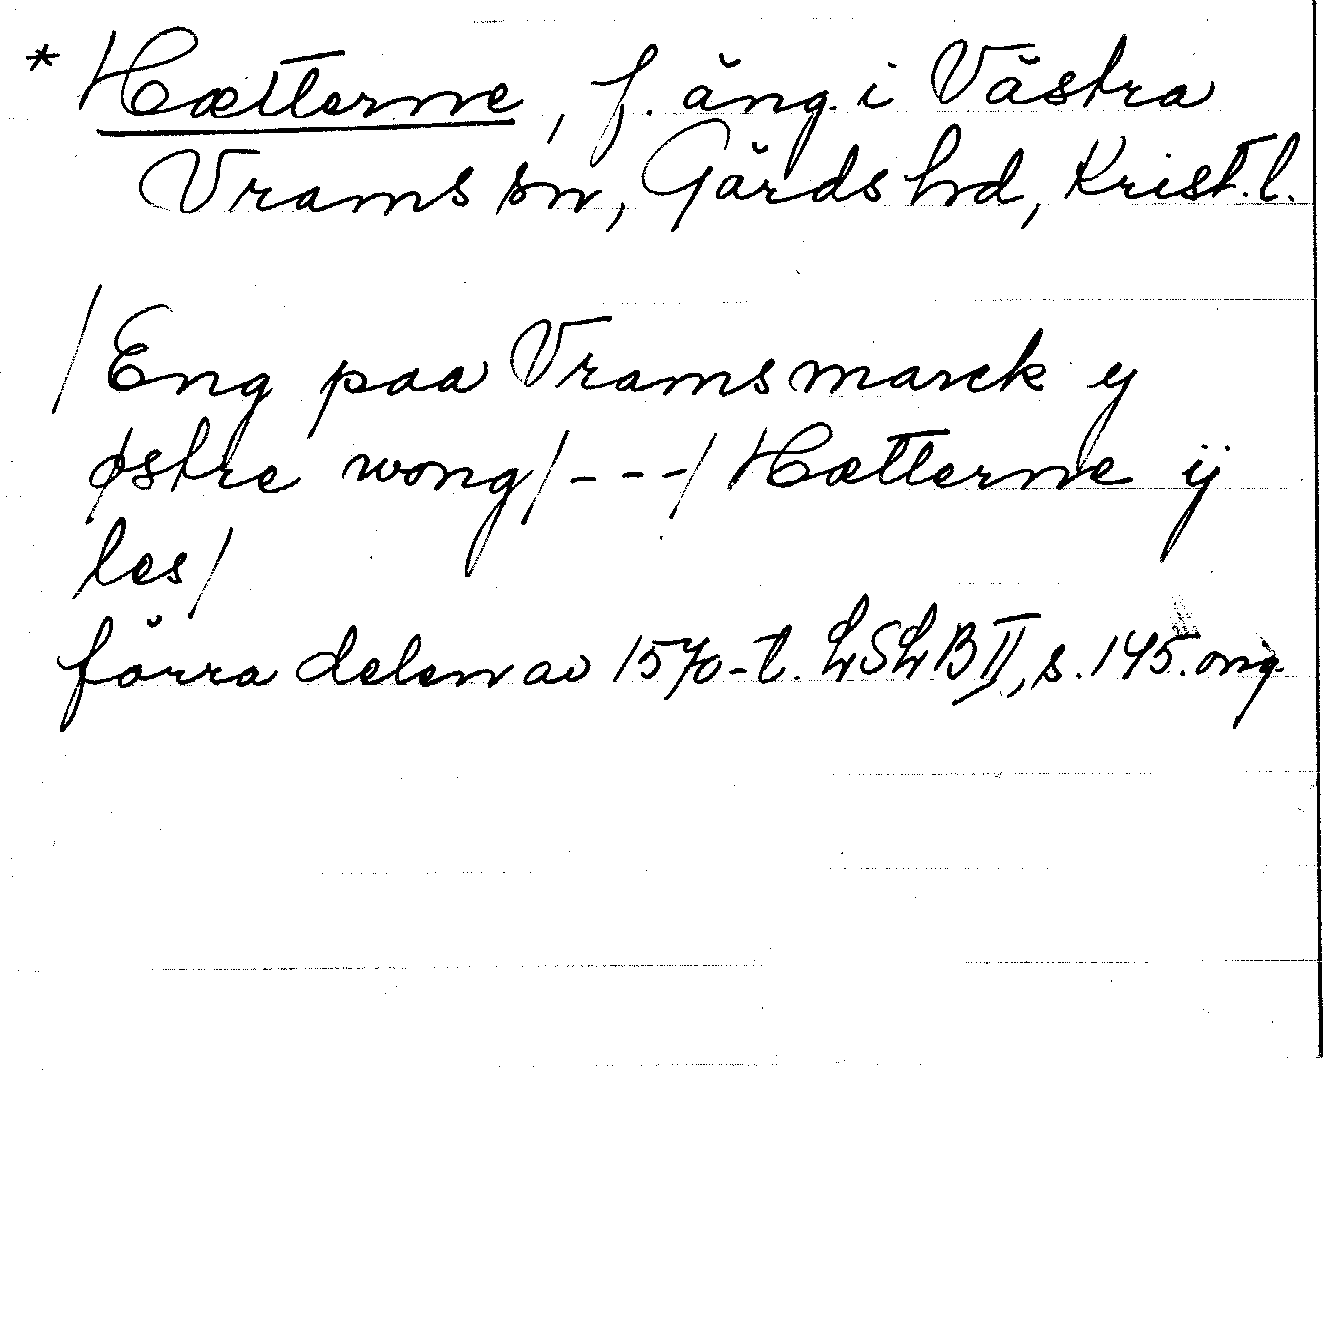 * Hætterne, f. äng. i Västra
Vrams sn, Gärds hd, Krist. l.
/Eng paa Vramsmarck y
østre wong/---/Hætterne ij
les/
förra delen av 1570-t. LSLB II, s. 145. orig.